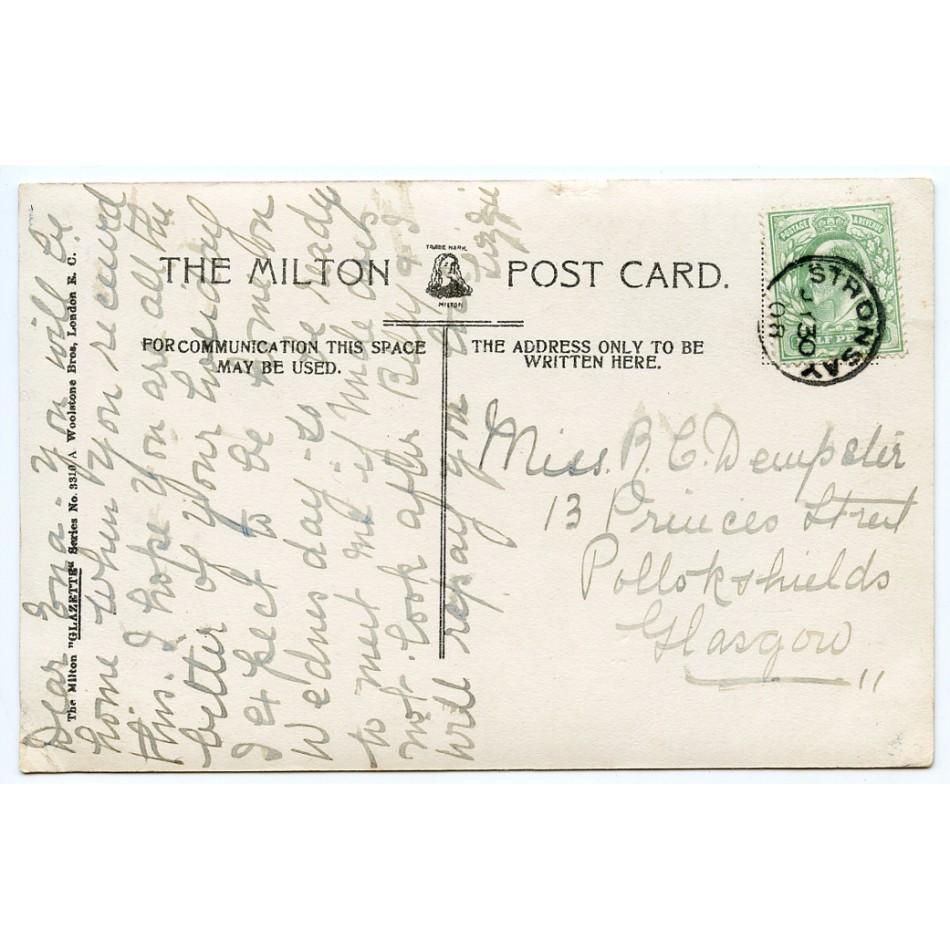 TRADE MARK
THE MILTON POST CARD.
MILTON
FOR COMMUNICATION THIS SPACE
MAY BE USED.
THE ADDRESS ONLY TO BE
WRITTEN HERE.
The Milton "GLAZETTE" Series No. 3310/A Woolstone Bros, London E. C.
Dear Ena - you will be
home when you received
this. I hope you are all the
better of your holiday
I expect to be home for
Wednesday to be ready
to meet me if Uncle does
not. Look after
will repay you
Lizzie
POSTAGE & REVENUE
HALF PE
STRONSAY
30
08
Miss. R. C. Dempster
13 Princes Street
Pollokshields
Glasgow